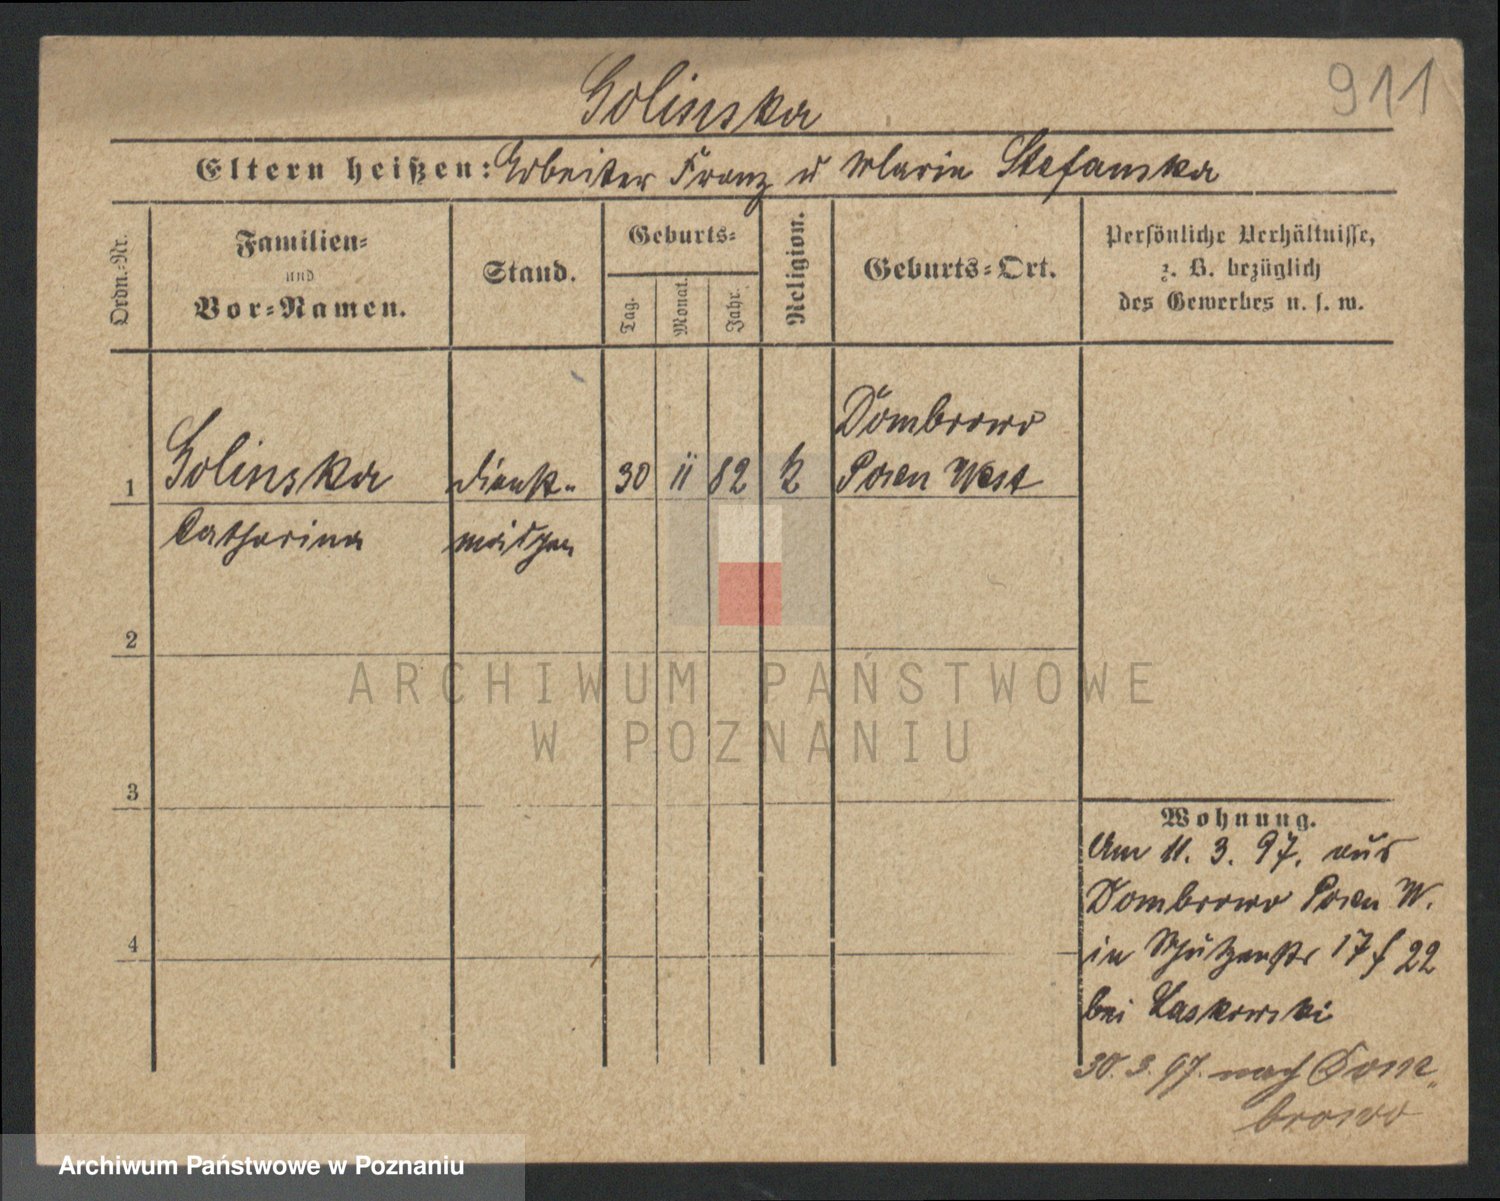 911
Golinska
Eltern heißen: Arbeiter Franz u Marie Stefanska
Ordn.-Nr.
Familien-
und
Vor-Namen.
Stand.
Geburts-
Tag.
Monat.
Jahr.
Religion.
Geburts-Ort.
Persönliche Verhältnisse,
z. B. bezüglich
des Gewerbes u. s. w.
Dombrowo
1 Golinska dienst- 30 11 82 k Posen West
Catharina mädchen
2
ARCHIWUM PAŃSTWOWE
W POZNANIU
3
Wohnung.
Am 11. 3. 97. aus
Dombrowo Posen W.
4
in Schützenstr 17 f 22
bei Laskowski
30. 3. 97. nach Dom-
browo
Archiwum Państwowe w Poznaniu